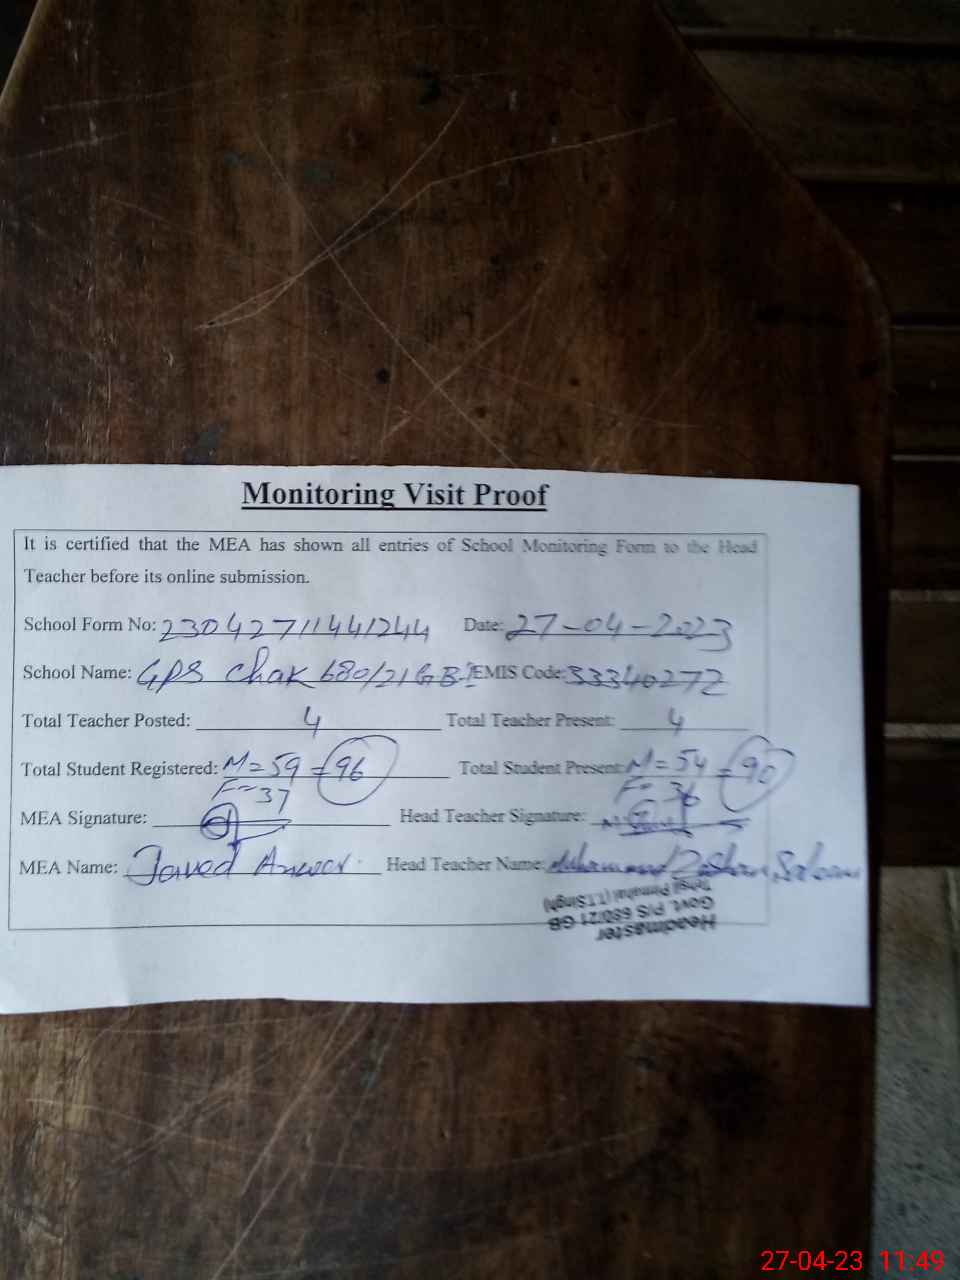 Monitoring Visit Proof
It is certified that the MEA has shown all entries of School Monitoring Form to the Head
Teacher before its online submission.
School Form No: 23042711441244 Date: 27-04-2023
School Name: GPS Chak 680/21 GB EMIS Code: 33340272
Total Teacher Posted: 4 Total Teacher Present: 4
Total Student Registered: M=59 =96 Total Student Present: M=54 =90
F=37 F=36
MEA Signature: Head Teacher Signature:
MEA Name: Javed Anwar Head Teacher Name: Muhammad Saleem
Headmaster
Govt. P/S 680/21 GB
Tehsil Pirmahal (T.T.Singh)
27-04-23 11:49